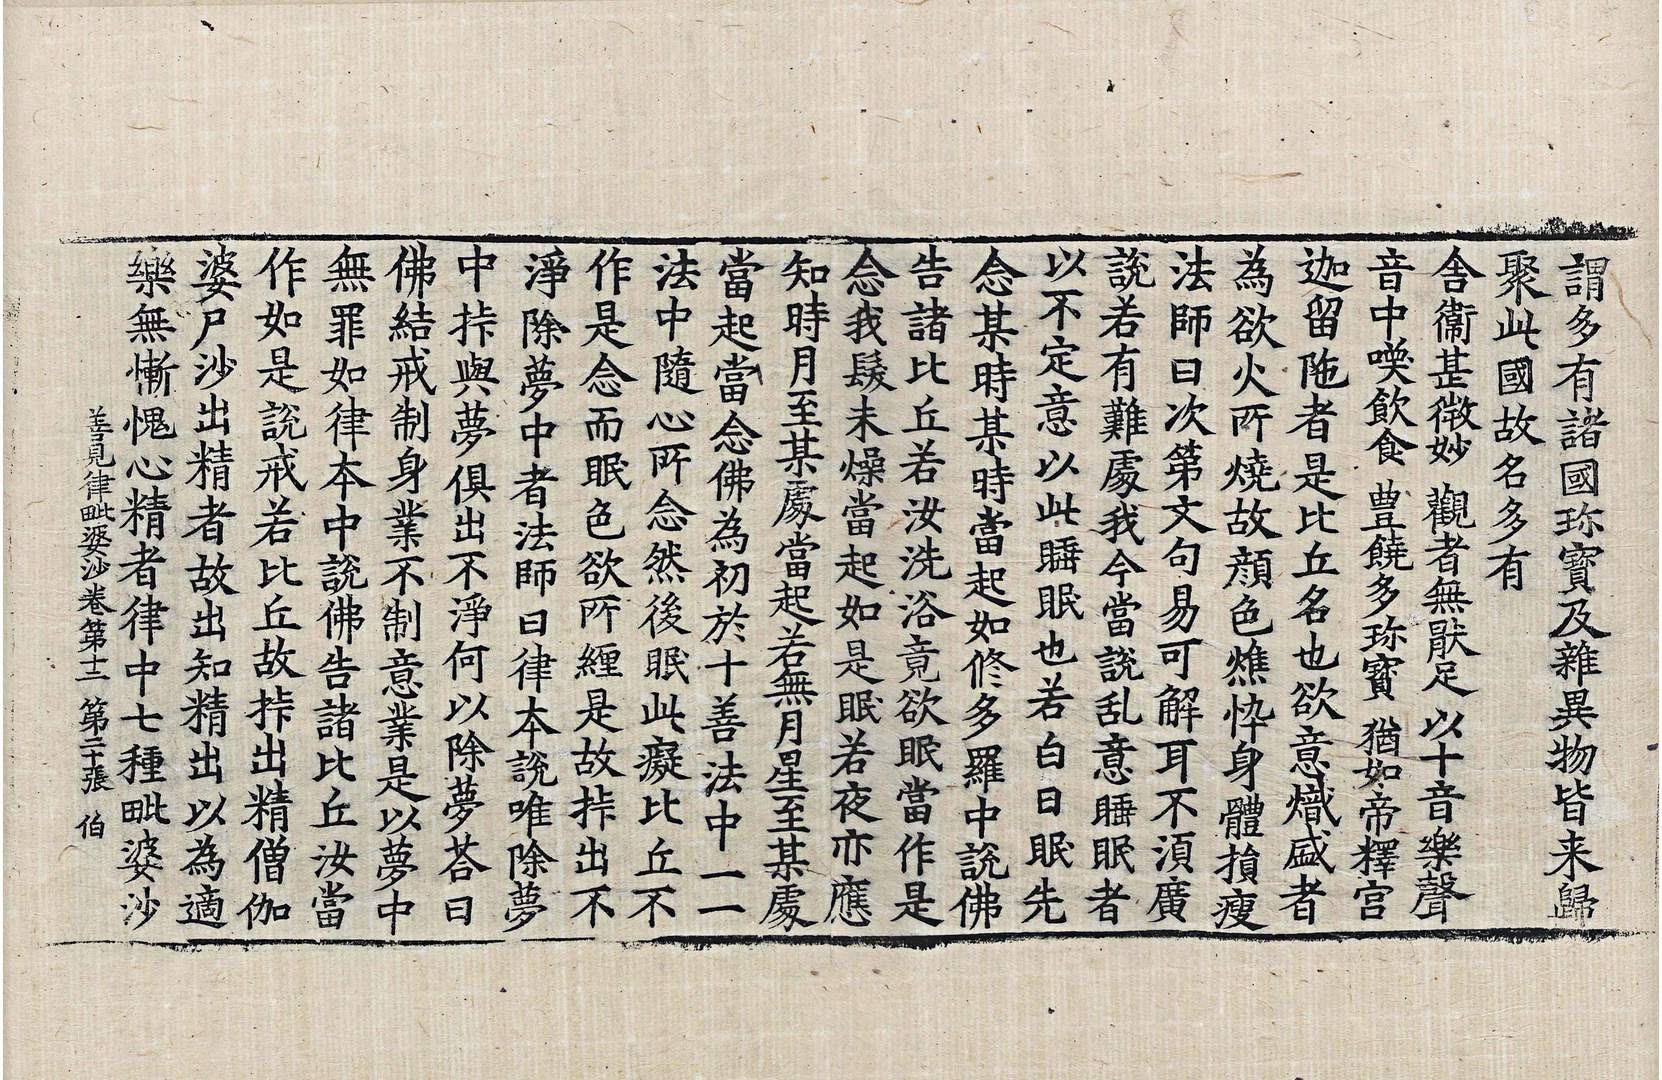 謂多有諸國珎寶及雜異物皆来歸
聚此國故名多有
舍衛甚微妙 觀者無猒足 以十音樂聲
音中喚飲食 豊饒多珎寶 猶如帝釋宮
迦留陁者是比丘名也欲意熾盛者
為欲火所燒故顔色燋悴身體損瘦
法師曰次第文句易可解耳不湏廣
說若有難處我今當說乱意睡眠者
以不定意以此睡眠也若白日眠先
念某時某時當起如修多羅中說佛
告諸比丘若汝洗浴竟欲眠當作是
念我髮未燥當起如是眠若夜亦應
知時月至某處當起若無月星至某處
當起當念佛為初於十善法中一一
法中隨心所念然後眠此癡比丘不
作是念而眠色欲所纏是故挊出不
淨除夢中者法師曰律本說唯除夢
中挊與夢俱出不淨何以除夢荅曰
佛結戒制身業不制意業是以夢中
無罪如律本中說佛告諸比丘汝當
作如是說戒若比丘故挊出精僧伽
婆尸沙出精者故出知精出以為適
樂無慚愧心精者律中七種毗婆沙
善見律毗婆沙卷第十二 第二十張 伯